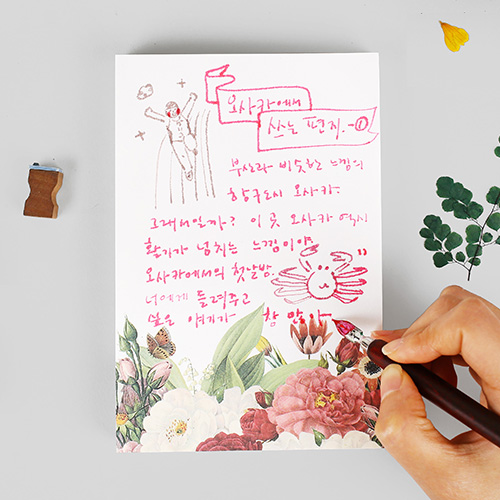 오사카에서
쓰는 편지.-①
부산과 비슷한 느낌의
항구도시 오사카.
그래서일까? 이 곳 오사카 역시
활기가 넘치는 느낌이야
오사카에서의 첫날밤.
너에게 들려주고
싶은 얘기가 참 많아